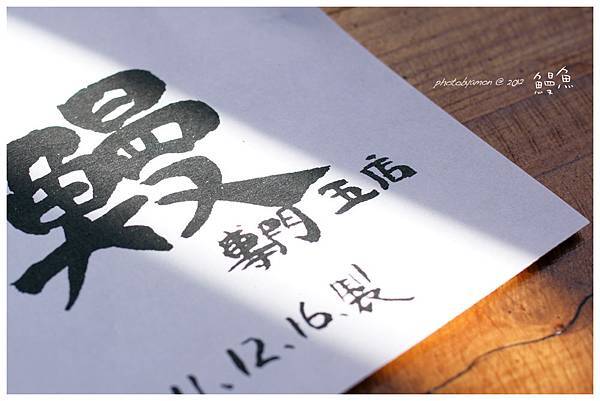 鰻
專門 五店
11.12.16.製
photobyamon @ 2012 鰻魚